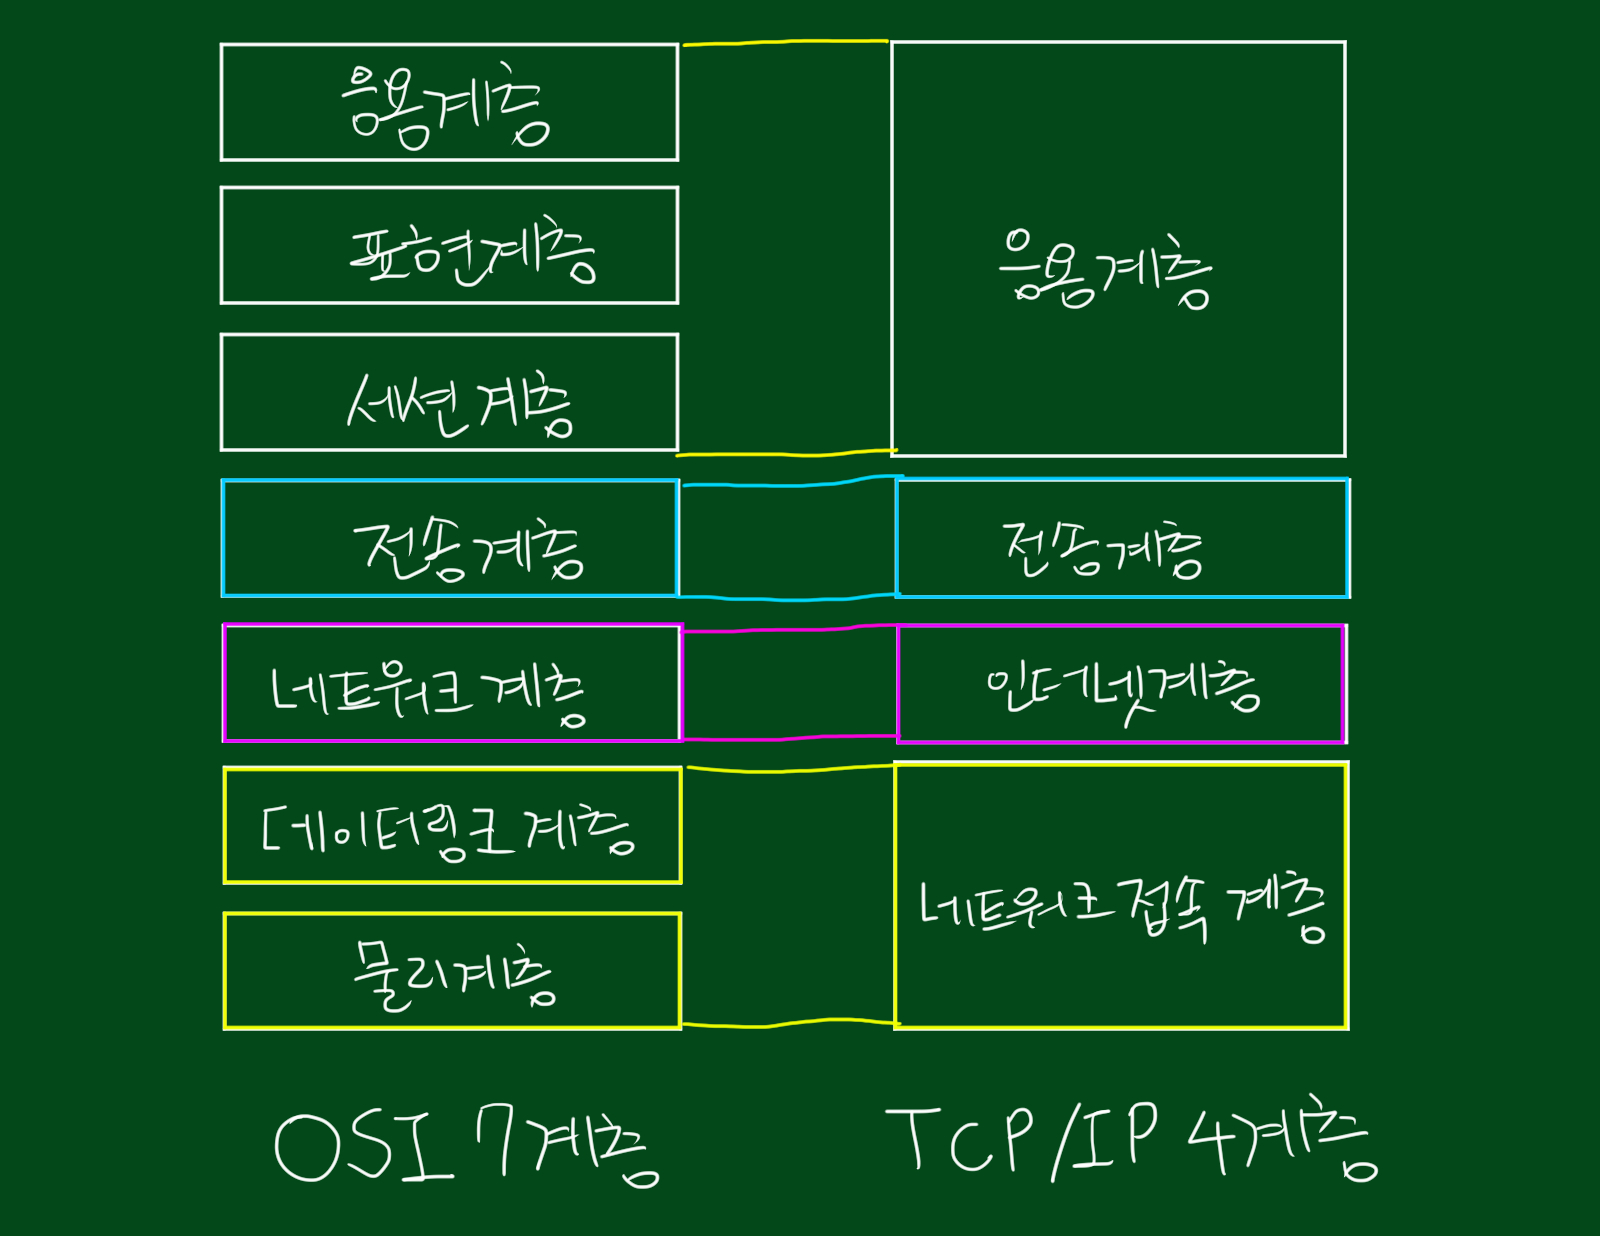 응용계층
표현계층
세션 계층
전송계층
네트워크 계층
데이터링크 계층
물리계층
OSI 7계층
응용계층
전송계층
인터넷계층
네트워크 접속 계층
TCP/IP 4계층